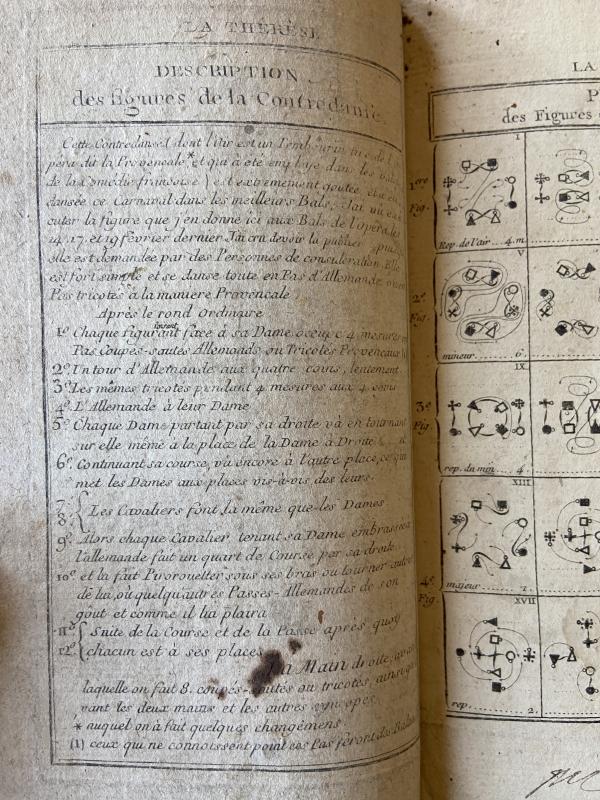 LA THÉRÈSE
DESCRIPTION
des figures de la Contredanse.
Cette Contredanse dont l'Air est un Tembourin tiré de l'O
pera dit la Provencale * et qui a eté employé dans les bals
de la Comédie françoise est extrêmement goutée et a été
dansée ce Carnaval dans les meilleurs Bals, J'ai vu exé
cuter la figure que j'en donne ici aux Bals de l'opéra les
14. 17. et 19 février dernier J'ai cru devoir la publier puis
elle est demandée par des Personnes de considération. Elle
est fort simple et se danse toute en Pas d'Allemande ou en
Pas tricotés à la maniere Provencale
Après le rond Ordinaire
1º Chaque figurant faisant face à sa Dame occupe 4 mesures en
Pas Coupés-sautés Allemands ou Tricotés Provencaux
2º Un tour d'Allemande aux quatre coins, lentement
3º Les mêmes tricotés pendant 4 mesures aux 4 coins
4º L'Allemande à leur Dame
5º Chaque Dame partant par sa droite va en tournant
sur elle même à la place de la Dame à Droite
6º Continuant sa course, va encore à l'autre place, ce qui
met les Dames aux places vis-à-vis des leurs.
7º
8º Les Cavaliers font la même que les Dames
9º Alors chaque Cavalier tenant sa Dame embrassée à
l'allemande fait un quart de Course par sa droite
10º et la fait Pirorouetter sous ses bras ou tourner autour
de lui, où quelqu'autres Passes-Allemandes de son
goût et comme il lui plaira
11º Suite de la Course et de la Passe après quoy
12º chacun est à ses places
La Main droite,
laquelle on fait 8. coupés-sautés ou tricotés, ainsi que
vant les deux mains et les autres
* auquel on à fait quelques changémens
(1) ceux qui ne connoissent point ces Pas feront des
LA
P
des Figures
1ere
Fig.
I
Rep. de l'air 4. m.
2e
Fig.
V
mineur 6
3e
Fig.
IX
rep. du min. 4.
XIII
majeur
4e
Fig.
XVII
rep. 2.